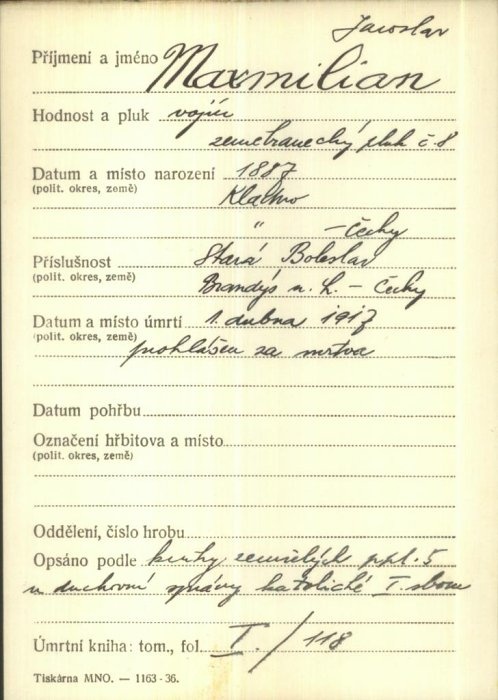 Jaroslav
Příjmení a jméno Maxmilian
Hodnost a pluk vojín
zeměbranecký pluk č. 8
Datum a místo narození 1887
(polit. okres, země) Kladno
" - Čechy
Příslušnost Stará Boleslav
(polit. okres, země) Brandýs n. L. - Čechy
Datum a místo úmrtí 1. dubna 1917
(polit. okres, země)
prohlášen za mrtva
Datum pohřbu
Označení hřbitova a místo
(polit. okres, země)
Oddělení, číslo hrobu
Opsáno podle knihy zemřelých ppl. 5
u duchovní správy katolické I. sboru
Úmrtní kniha: tom., fol. I. / 118
Tiskárna MNO. — 1163-36.